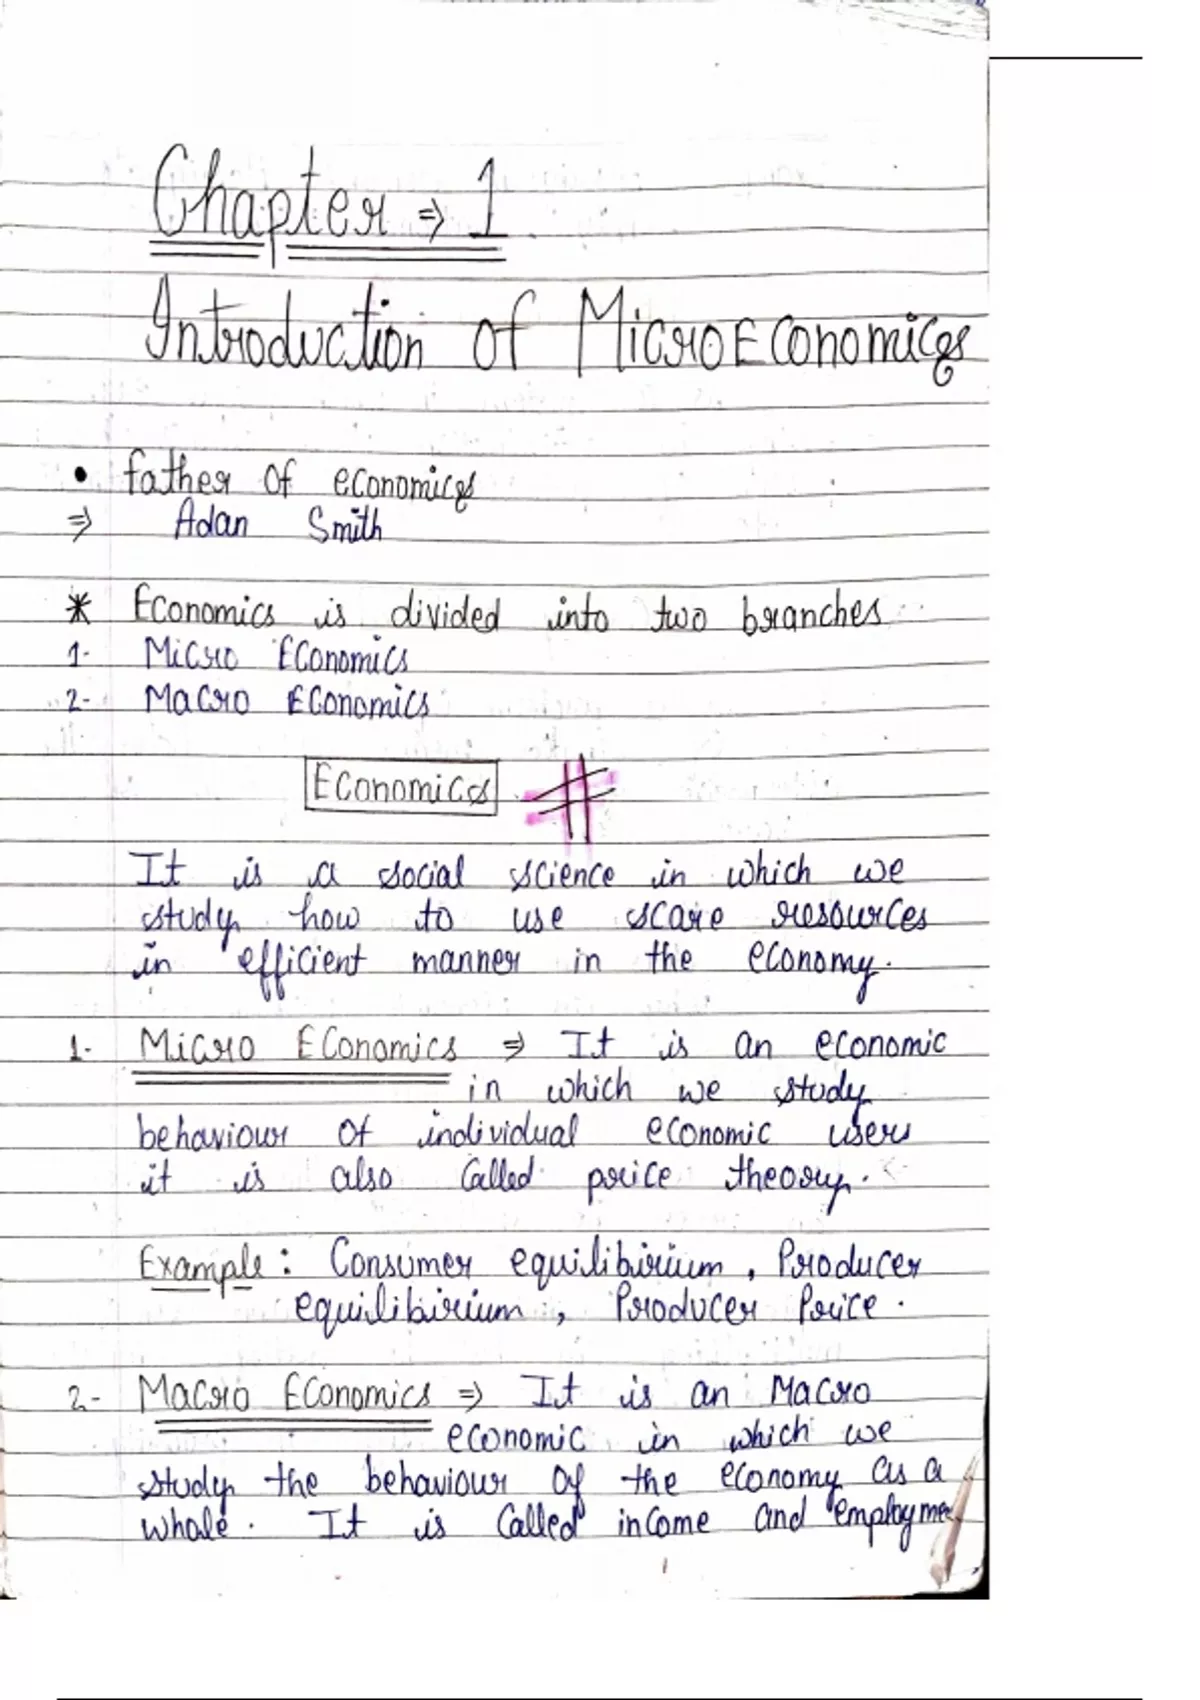 Chapter ⇒ 1
Introduction of MicroEconomics
• father of economics
⇒ Adan Smith
* Economics is divided into two branches
1- Micro Economics
2- Macro Economics
Economics #
It is a social science in which we
study how to use scare resources
in efficient manner in the economy.
1- Micro Economics ⇒ It is an economic
in which we study
behaviour of individual economic users
it is also Called price theory.
Example: Consumer equilibirium, Producer
equilibirium, Producer Price.
2- Macro Economics ⇒ It is an Macro
economic in which we
study the behaviour of the economy as a
whole. It is Called income and employme